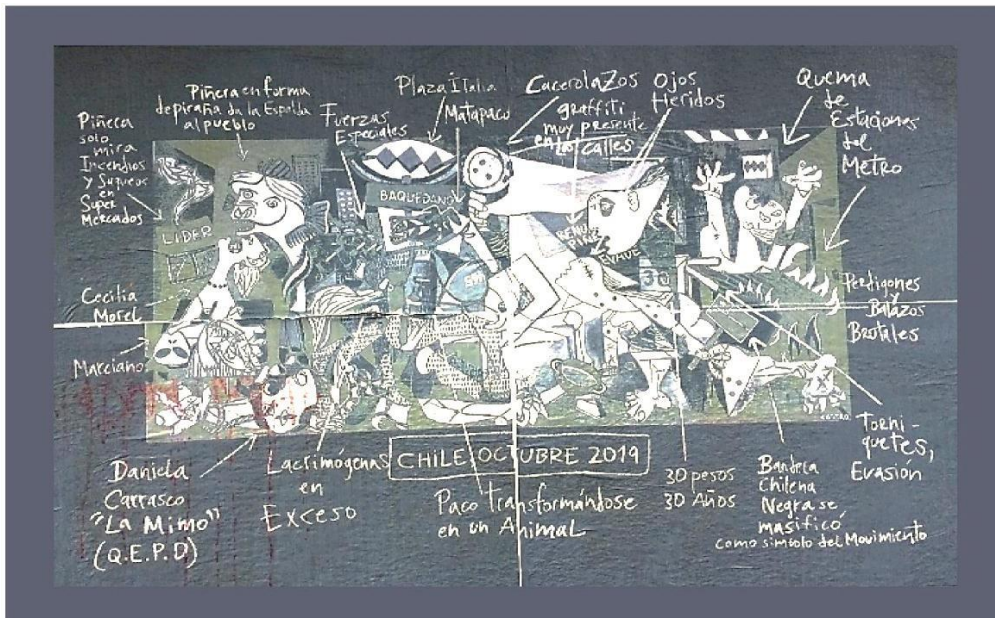 Piñera
solo
mira
Incendios
y Saqueos
en
Super
Mercados
Piñera en forma
de piraña da la Espalda
al pueblo
Fuerzas
Especiales
Plaza Italia
Matapaco
Cacerolazos
graffiti
muy presente
en las calles
Ojos
Heridos
Quema
de
Estaciones
del
Metro
LIDER
BAQUEDANO
RENUN
PIÑE
EVADE
30
Cecilia
Morel
Marciano
Perdigones
y
Balazos
Brutales
Daniela
Carrasco
"La Mimo"
(Q.E.P.D)
Lacrimógenas
en
Exceso
CHILE OCTUBRE 2019
Paco transformándose
en un Animal
30 pesos
30 Años
Bandera
Chilena
Negra se
masificó
como simbolo del Movimiento
Torni-
quetes,
Evasión